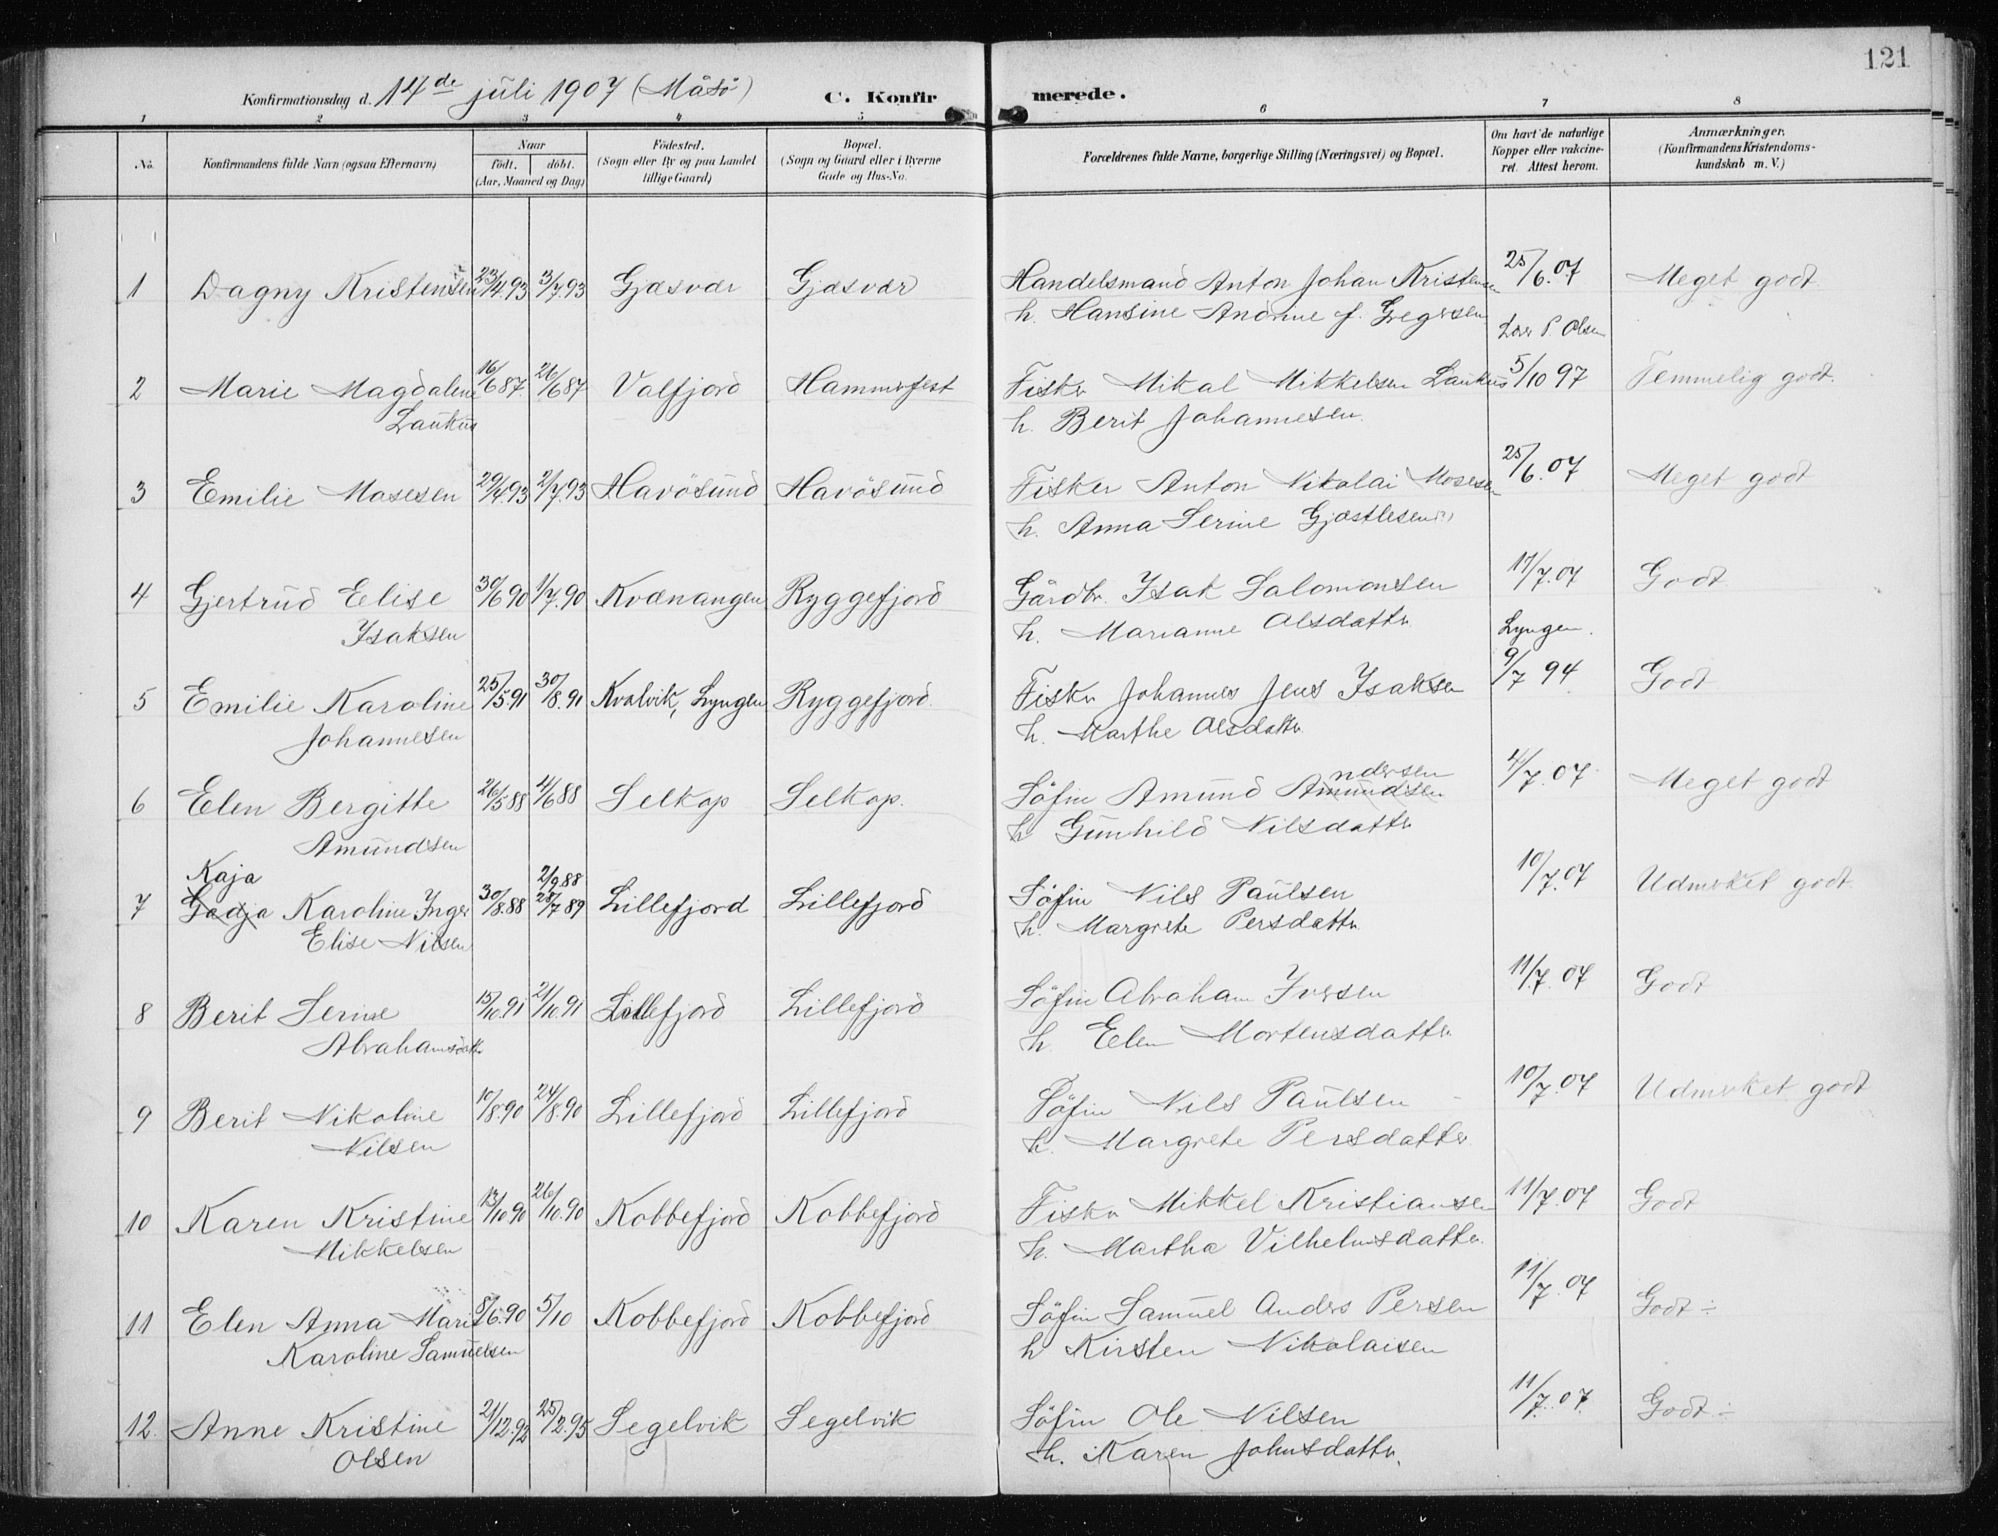 121
Konfirmationsdag d. 14de juli 1907 (Måsø) C. Konfirmerede.
1 2 3 4 5 6 7 8
No. Konfirmandens fulde Navn (ogsaa Efternavn) Naar født. døbt. (Aar, Maaned og Dag) Fødested. (Sogn eller By og paa Landet tillige Gaard) Bopæl. (Sogn og Gaard eller i Byerne Gade og Hus-No. Forældrenes fulde Navne, borgerlige Stilling (Næringsvei) og Bopæl. Om havt de naturlige Kopper eller vakcineret. Attest herom. Anmærkninger. (Konfirmandens Kristendomskundskab m. V.)
1 Dagny Kristensen 23/4.93 3/7.93 Gjæsvær Gjæsvær Handelsmand Anton Johan Kristensen 25/6.07 Meget godt
h. Hansine Andrine f. Gregersen P. Olsen
2 Marie Magdalene 16/6 87. 26/6 87 Valfjord Hammerfest Fisker Mikal Mikkelsen Laukus 5/10 97 Temmelig godt.
Laukus h. Berit Johannesen
3 Emilie Mosesen 29/4.93 2/7.93 Havösund Havösund Fisker Anton Nikolai Mosesen 25/6.07 Meget godt
h. Anna Serine
4 Gjertrud Elise 30/6 90 1/7.90 Kvænangen Ryggefjord Gårdbr. Isak Salomonsen 17/7.07 Godt
Isaksen h. Marianne Olsdattr Lyngen.
5 Emilie Karoline 25/5.91 30/8.91 Kvalvik, Lyngen Ryggefjord. Fisker Johannes Jens Isaksen 9/7 94 Godt
Johannesen h. Marthe Olsdattr.
6 Elen Bergitte 26/5 88 4/6 88 Selkop Selkop. Söfin Amund Amundsen ndersen 4/7.07 Meget godt
Amundsen h Gunhild Nilsdattr
Kaja 2/9.88
7 Gadja Karoline Inger 30/8.88 28/7 89 Lillefjord Lillefjord Söfin Nils Paulsen 10/7.07 Udmerket godt.
Elise Nilsen h. Margrete Persdattr.
8 Berit Serine 15/10.91 21/10.91 Lillefjord Lillefjord Söfin Abraham Iversen 11/7.07 Godt
Abrahamsdattr h. Elen Mortensdattr
9 Berit Nikoline 10/8.90 24/8.90 Lillefjord Lillefjord Söfin Nils Paulsen 10/7.07 Udmerket godt
Nilsen h. Margrete Persdatter
10 Karen Kristine 13/10 90 26/10.90 Kobbefjord Kobbefjord Fisker Mikkel Kristiansen 11/7.07 Godt
Mikkelsen h. Martha Vilhelmsdatter
11 Elen Anna Marie 8/6.90 5/10 Kobbefjord Kobbefjord Söfin Samuel Anders Persen 11/7.07 Godt ÷
Karoline Samuelsen h Kirsten Nikolaisen
12. Anne Kristine 21/12.92 25/2.95 Segelvik Segelvik Söfin Ole Nilsen 11/7.07. Godt ÷
Olsen h. Karen Johnsdattr.